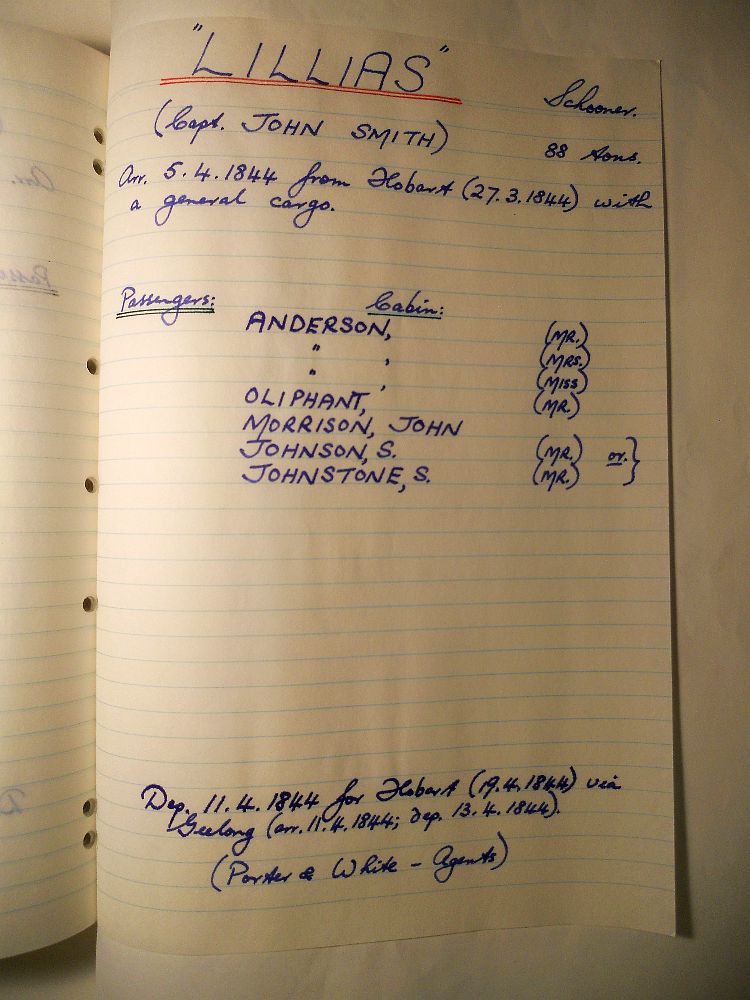 "LILLIAS"
Schooner.
(Capt. JOHN SMITH)
88 tons.
Arr. 5.4.1844 from Hobart (27.3.1844) with
a general cargo.
Passengers: Cabin:
ANDERSON, (MR.)
" , (MRS.)
" , (MISS)
OLIPHANT, (MR.)
MORRISON, JOHN
JOHNSON, S. (MR.) or. }
JOHNSTONE, S. (MR.)
Dep. 11.4.1844 for Hobart (19.4.1844) via
Geelong (arr. 11.4.1844; dep. 13.4.1844).
(Porter & White - Agents)